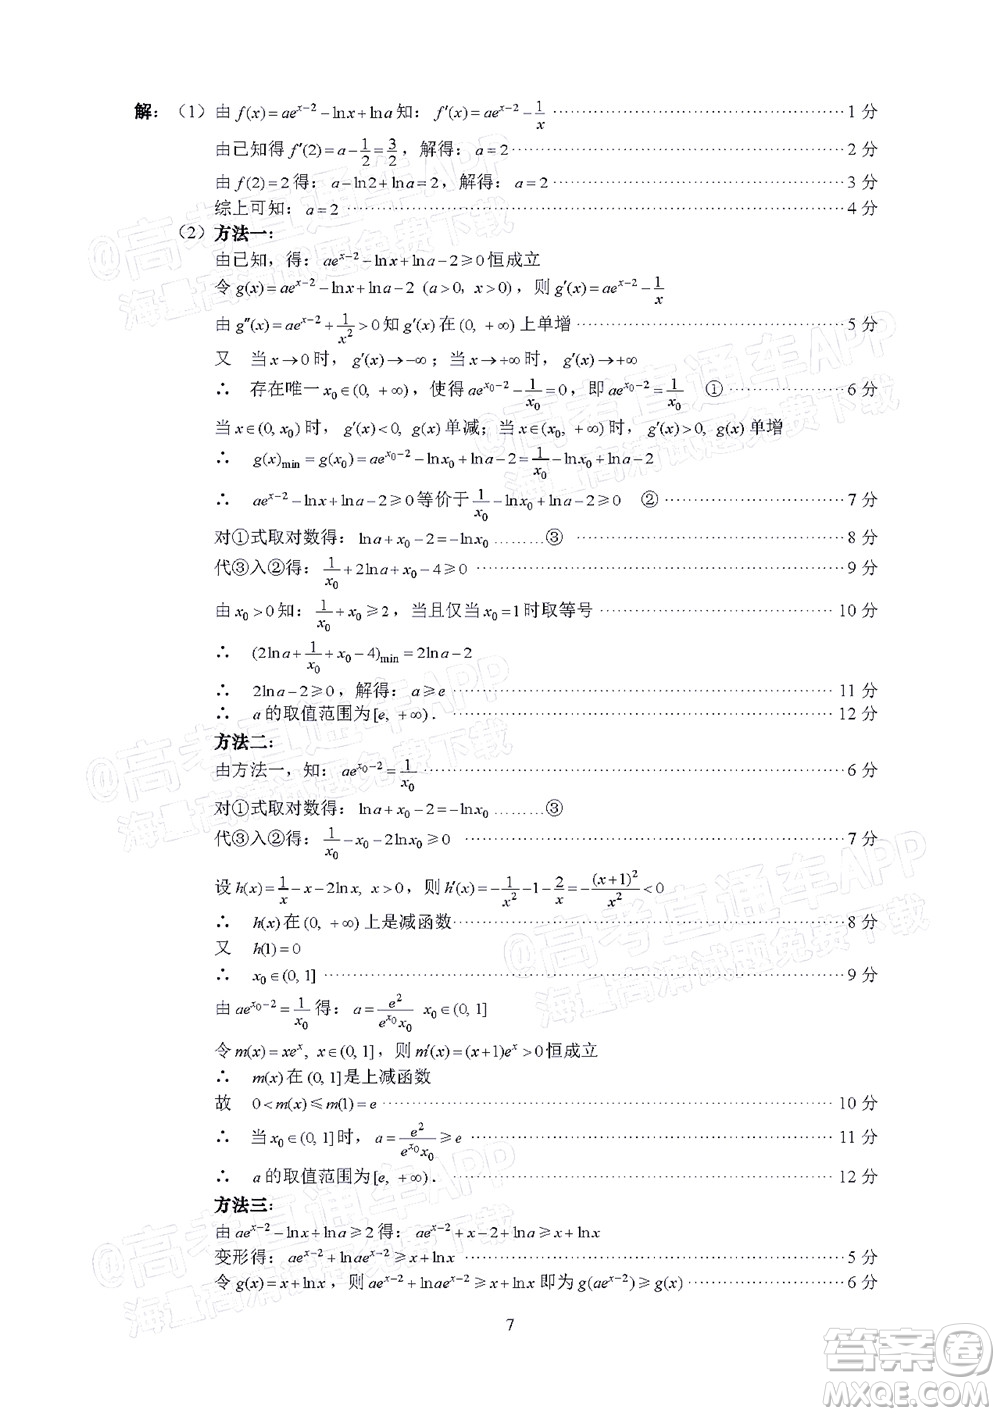 解：（1）由 f(x)=ae^{x-2}-lnx+lna 知：f′(x)=ae^{x-2}-\frac{1}{x} ………… 1 分
由已知得 f′(2)=a-\frac{1}{2}=\frac{3}{2}，解得：a=2 ………… 2 分
由 f(2)=2 得：a-ln2+lna=2，解得：a=2 ………… 3 分
综上可知：a=2 ………… 4 分
（2）方法一：
由已知，得：ae^{x-2}-lnx+lna-2≥0 恒成立
令 g(x)=ae^{x-2}-lnx+lna-2 (a>0, x>0)，则 g′(x)=ae^{x-2}-\frac{1}{x}
由 g″(x)=ae^{x-2}+\frac{1}{x^2}>0 知 g′(x) 在 (0, +∞) 上单增 ………… 5 分
又 当 x→0 时，g′(x)→-∞；当 x→+∞ 时，g′(x)→+∞
∴ 存在唯一 x_0∈(0, +∞)，使得 ae^{x_0-2}-\frac{1}{x_0}=0，即 ae^{x_0-2}=\frac{1}{x_0} ① ………… 6 分
当 x∈(0, x_0) 时，g′(x)<0, g(x) 单减；当 x∈(x_0, +∞) 时，g′(x)>0, g(x) 单增
∴ g(x)_{min}=g(x_0)=ae^{x_0-2}-lnx_0+lna-2=\frac{1}{x_0}-lnx_0+lna-2
∴ ae^{x-2}-lnx+lna-2≥0 等价于 \frac{1}{x_0}-lnx_0+lna-2≥0 ② ………… 7 分
对①式取对数得：lna+x_0-2=-lnx_0 ………③ ………… 8 分
代③入②得：\frac{1}{x_0}+2lna+x_0-4≥0 ………… 9 分
由 x_0>0 知：\frac{1}{x_0}+x_0≥2，当且仅当 x_0=1 时取等号 ………… 10 分
∴ (2lna+\frac{1}{x_0}+x_0-4)_{min}=2lna-2
∴ 2lna-2≥0，解得：a≥e ………… 11 分
∴ a 的取值范围为 [e, +∞)． ………… 12 分
方法二：
由方法一，知：ae^{x_0-2}=\frac{1}{x_0} ………… 6 分
对①式取对数得：lna+x_0-2=-lnx_0 ………③
代③入②得：\frac{1}{x_0}-x_0-2lnx_0≥0 ………… 7 分
设 h(x)=\frac{1}{x}-x-2lnx, x>0，则 h′(x)=-\frac{1}{x^2}-1-\frac{2}{x}=-\frac{(x+1)^2}{x^2}<0
∴ h(x) 在 (0, +∞) 上是减函数 ………… 8 分
又 h(1)=0
∴ x_0∈(0, 1] ………… 9 分
由 ae^{x_0-2}=\frac{1}{x_0} 得：a=\frac{e^2}{e^{x_0}x_0} x_0∈(0, 1]
令 m(x)=xe^x, x∈(0, 1]，则 m′(x)=(x+1)e^x>0 恒成立
∴ m(x) 在 (0, 1] 是上减函数
故 0<m(x)≤m(1)=e ………… 10 分
∴ 当 x_0∈(0, 1] 时，a=\frac{e^2}{e^{x_0}x_0}≥e ………… 11 分
∴ a 的取值范围为 [e, +∞)． ………… 12 分
方法三：
由 ae^{x-2}-lnx+lna≥2 得：ae^{x-2}+x-2+lna≥x+lnx
变形得：ae^{x-2}+lnae^{x-2}≥x+lnx ………… 5 分
令 g(x)=x+lnx，则 ae^{x-2}+lnae^{x-2}≥x+lnx 即为 g(ae^{x-2})≥g(x) ………… 6 分
7
@高考直通车APP
海量高清试题免费下载
@高考直通车APP
海量高清试题免费下载
@高考直通车APP
海量高清试题免费下载
@高考直通车APP
海量高清试题免费下载
@高考直通车APP
海量高清试题免费下载
答案圈
MXQE.COM